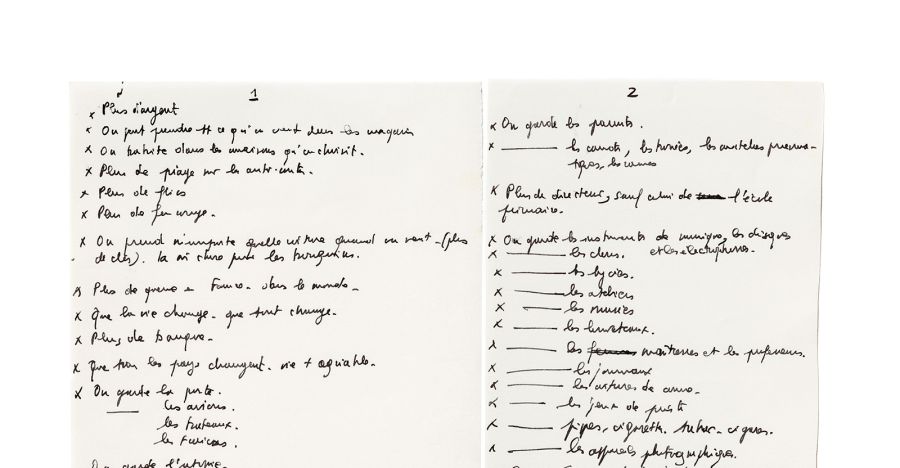 1
x Plus d'argent
x On peut prendre tt ce qu'on veut dans les magasins
x On habite dans les maisons qu'on choisit.
x Plus de péage sur les auto-routes.
x Plus de flics
x Plus de
x On prend n'importe quelle voiture quand on veut - (plus
de clés). la même chose pour les
x Plus de guerre en France. dans le monde -
x Que la vie change. que tout change.
x Plus de banque.
x Que tous les pays changent. vie + agréable.
x On garde la poste.
les avions.
les bateaux.
les
On garde l'usine.
2
x On garde les parents.
x les canots, les les matelas pneuma-
tiques, les cannes
x Plus de directeur, sauf celui de l'école
primaire.
x On garde les instruments de musique, les disques
et les électrophones.
x les clubs.
x les lycées.
x les ateliers
x les musées
x les bureaux.
x les maîtresses et les professeurs.
x les journaux
x les voitures de
x les jeux de
x pipes. cigarettes. tabac. cigares.
x les appareils photographiques.